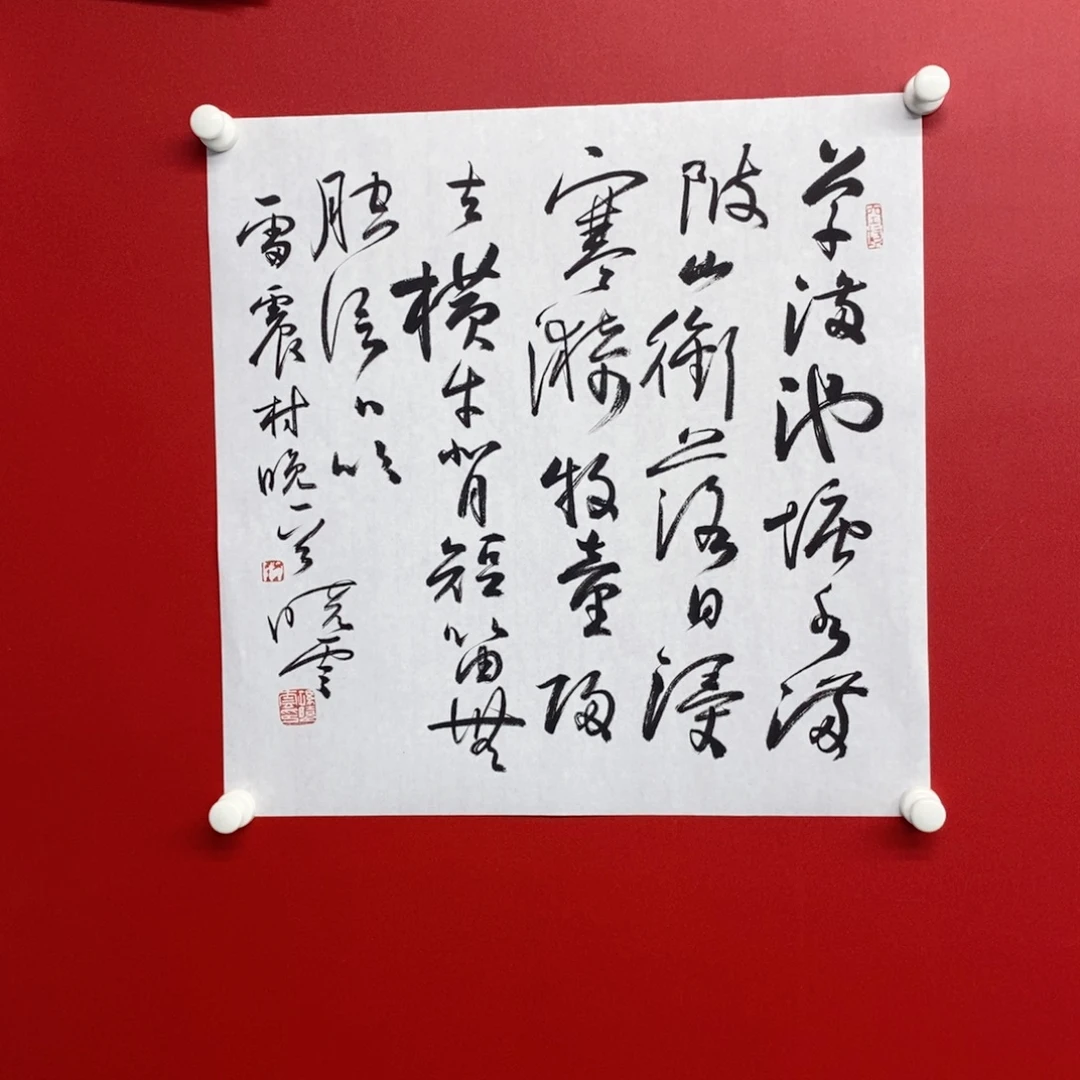 草满池塘水满
陂山衔落日浸
寒漪牧童归
去横牛背短笛無
腔信口吹
雷震村晚一首 晓雲